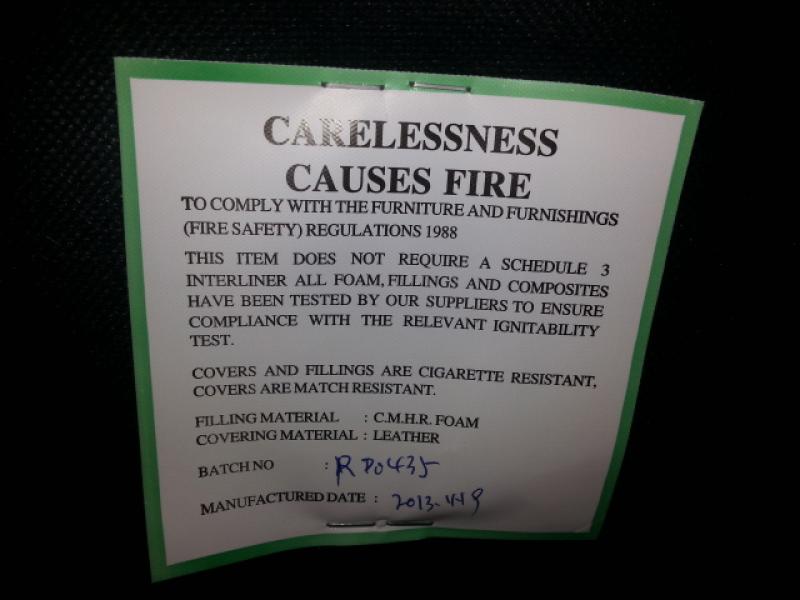 CARELESSNESS
CAUSES FIRE
TO COMPLY WITH THE FURNITURE AND FURNISHINGS
(FIRE SAFETY) REGULATIONS 1988
THIS ITEM DOES NOT REQUIRE A SCHEDULE 3
INTERLINER ALL FOAM, FILLINGS AND COMPOSITES
HAVE BEEN TESTED BY OUR SUPPLIERS TO ENSURE
COMPLIANCE WITH THE RELEVANT IGNITABILITY
TEST.
COVERS AND FILLINGS ARE CIGARETTE RESISTANT,
COVERS ARE MATCH RESISTANT.
FILLING MATERIAL : C.M.H.R. FOAM
COVERING MATERIAL : LEATHER
BATCH NO :
MANUFACTURED DATE :